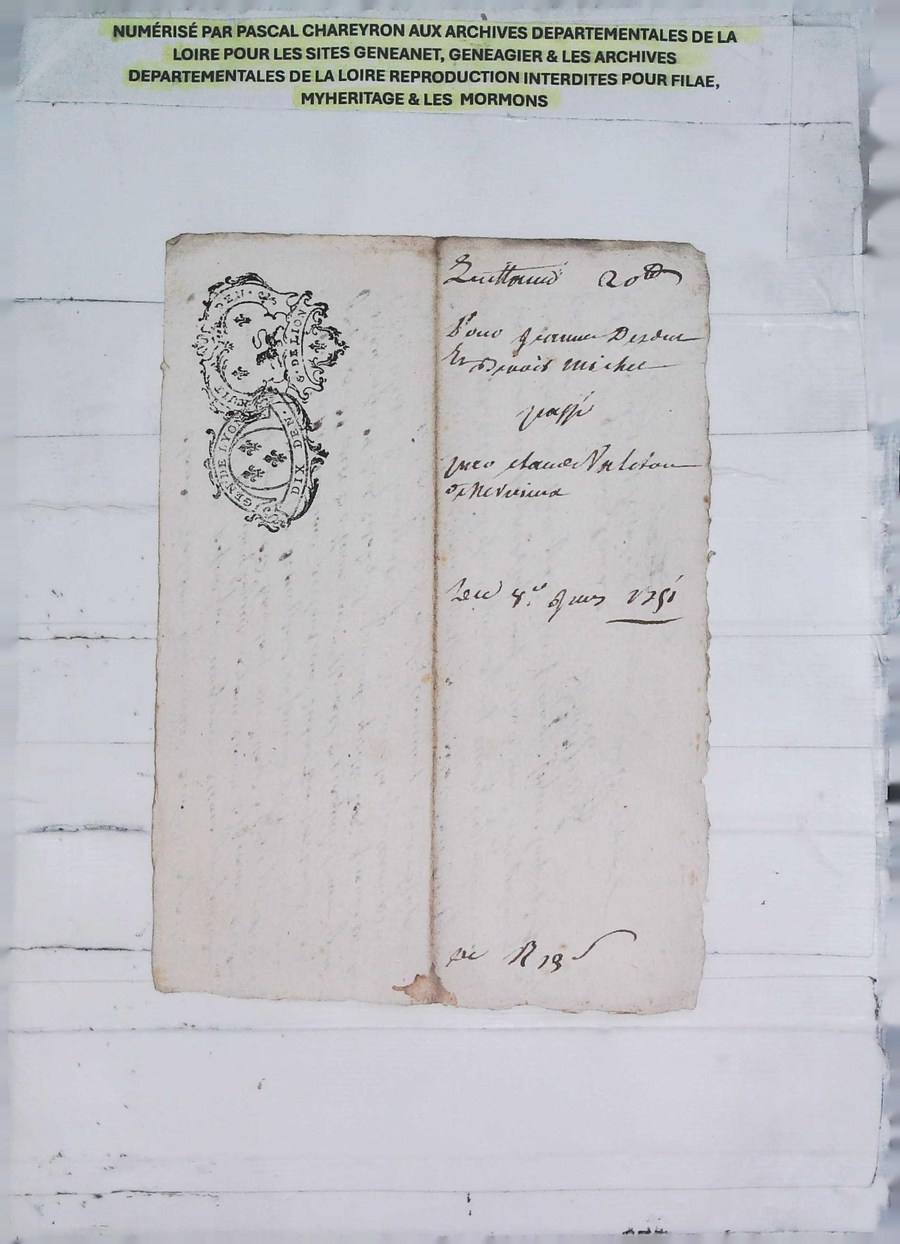 NUMÉRISÉ PAR PASCAL CHAREYRON AUX ARCHIVES DEPARTEMENTALES DE LA
LOIRE POUR LES SITES GENEANET, GENEAGIER & LES ARCHIVES
DEPARTEMENTALES DE LA LOIRE REPRODUCTION INTERDITES POUR FILAE,
MYHERITAGE & LES MORMONS
DEN
G. DE LION
HUIT
GEN. DE LYON
DIX DEN.
20
Pour Jeanne
Et Benoit Michel
passé
par Claude
Du 8.e 1751